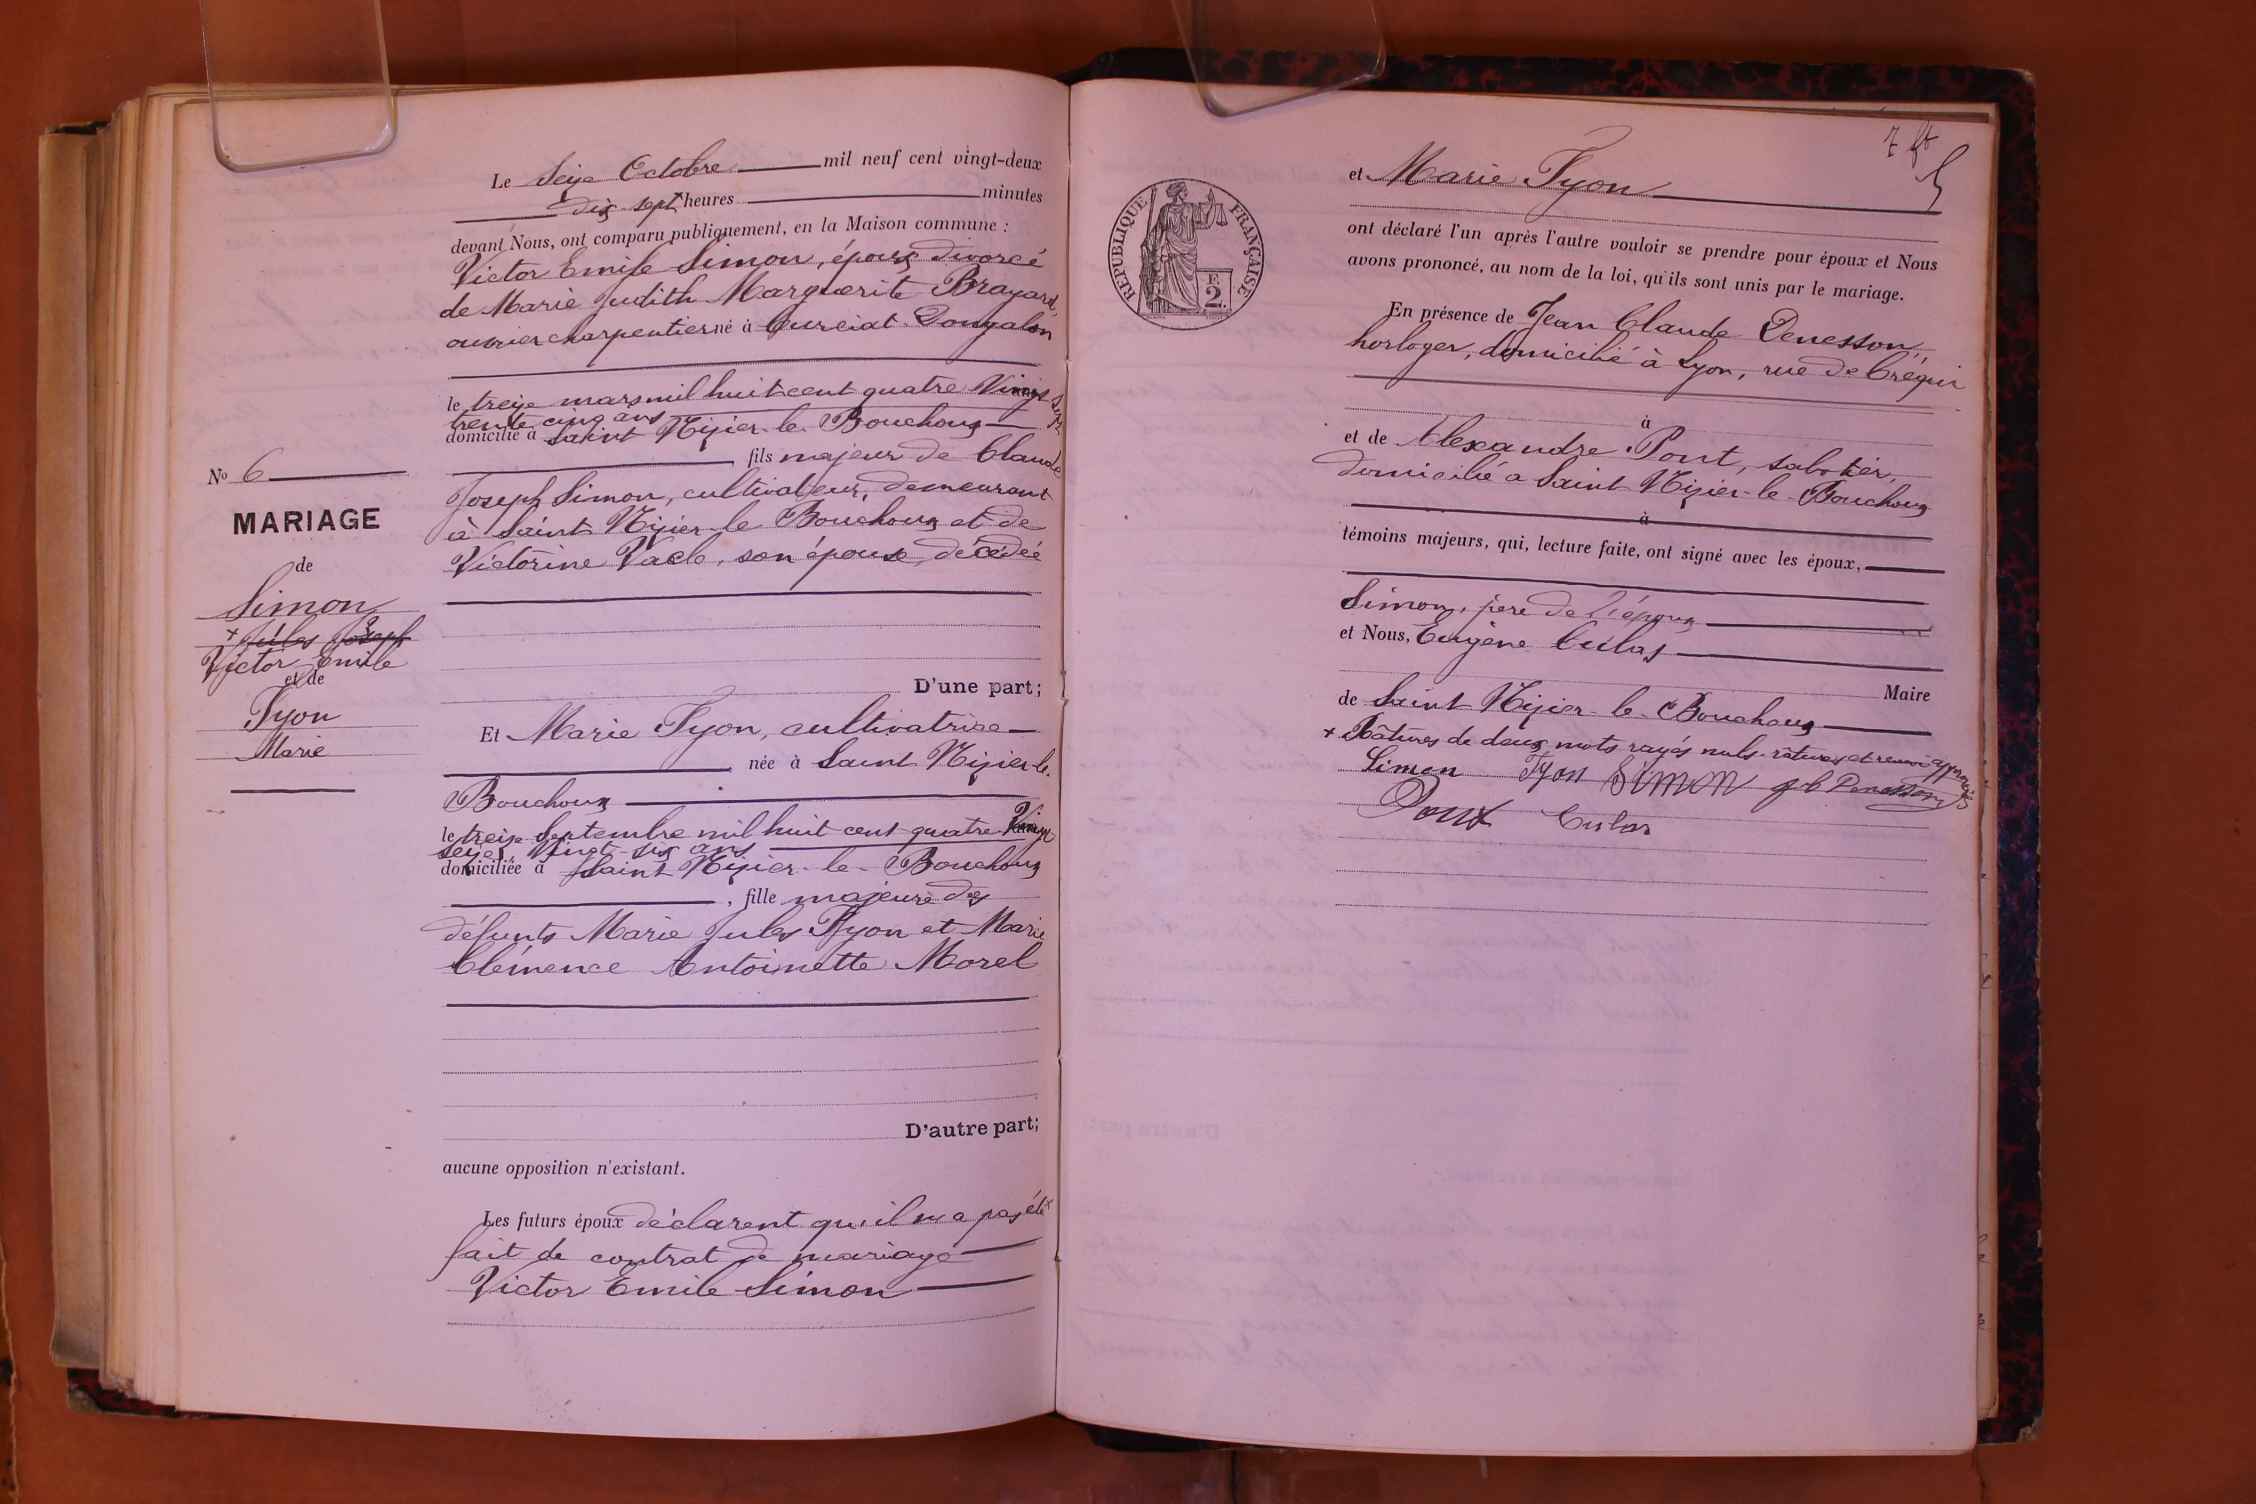 N° 6
MARIAGE
de
Simon
+ Jules Joseph
Victor Emile
et de
Tyon
Marie
Le Seize Octobre mil neuf cent vingt-deux
dix sept heures minutes
devant Nous, ont comparu publiquement, en la Maison commune :
Victor Emile Simon, époux divorcé
de Marie Judith Marguerite Brayard,
ouvrier charpentier né à Curciat-Dongalon
le treize mars mil huit cent quatre Vingt Sept
trente cinq ans
domicilié à Saint Nizier-le-Bouchoux
fils majeur de Claude
Joseph Simon, cultivateur, demeurant
à Saint Nizier-le-Bouchoux et de
Victorine Vacle, son épouse, décédée
D'une part;
Et Marie Tyon, cultivatrice
née à Saint Nizier-le-
Bouchoux
le treize Septembre mil huit cent quatre Vingt
seize, Vingt-six ans
domiciliée à Saint Nizier-le-Bouchoux
, fille majeure des
défunts Marie Jules Tyon et Marie
Clémence Antoinette Morel
D'autre part;
aucune opposition n'existant.
Les futurs époux déclarent qu'il n'a pas été
fait de contrat de mariage
Victor Emile Simon
RÉPUBLIQUE FRANÇAISE
F.
2.
et Marie Tyon
ont déclaré l'un après l'autre vouloir se prendre pour époux et Nous
avons prononcé, au nom de la loi, qu'ils sont unis par le mariage.
En présence de Jean Claude Denesson,
horloger, domicilié à Lyon, rue de Créqui
à
et de Alexandre Pont, sabotier,
domicilié a Saint Nizier-le-Bouchoux
à
témoins majeurs, qui, lecture faite, ont signé avec les époux,
Simon, père de l'époux
et Nous, Eugène Culas
Maire
de Saint Nizier-le-Bouchoux
+ Râtures de deux mots rayés nuls. râtures et renvoi approuvés
Simon Tyon Simon
Pont Culas